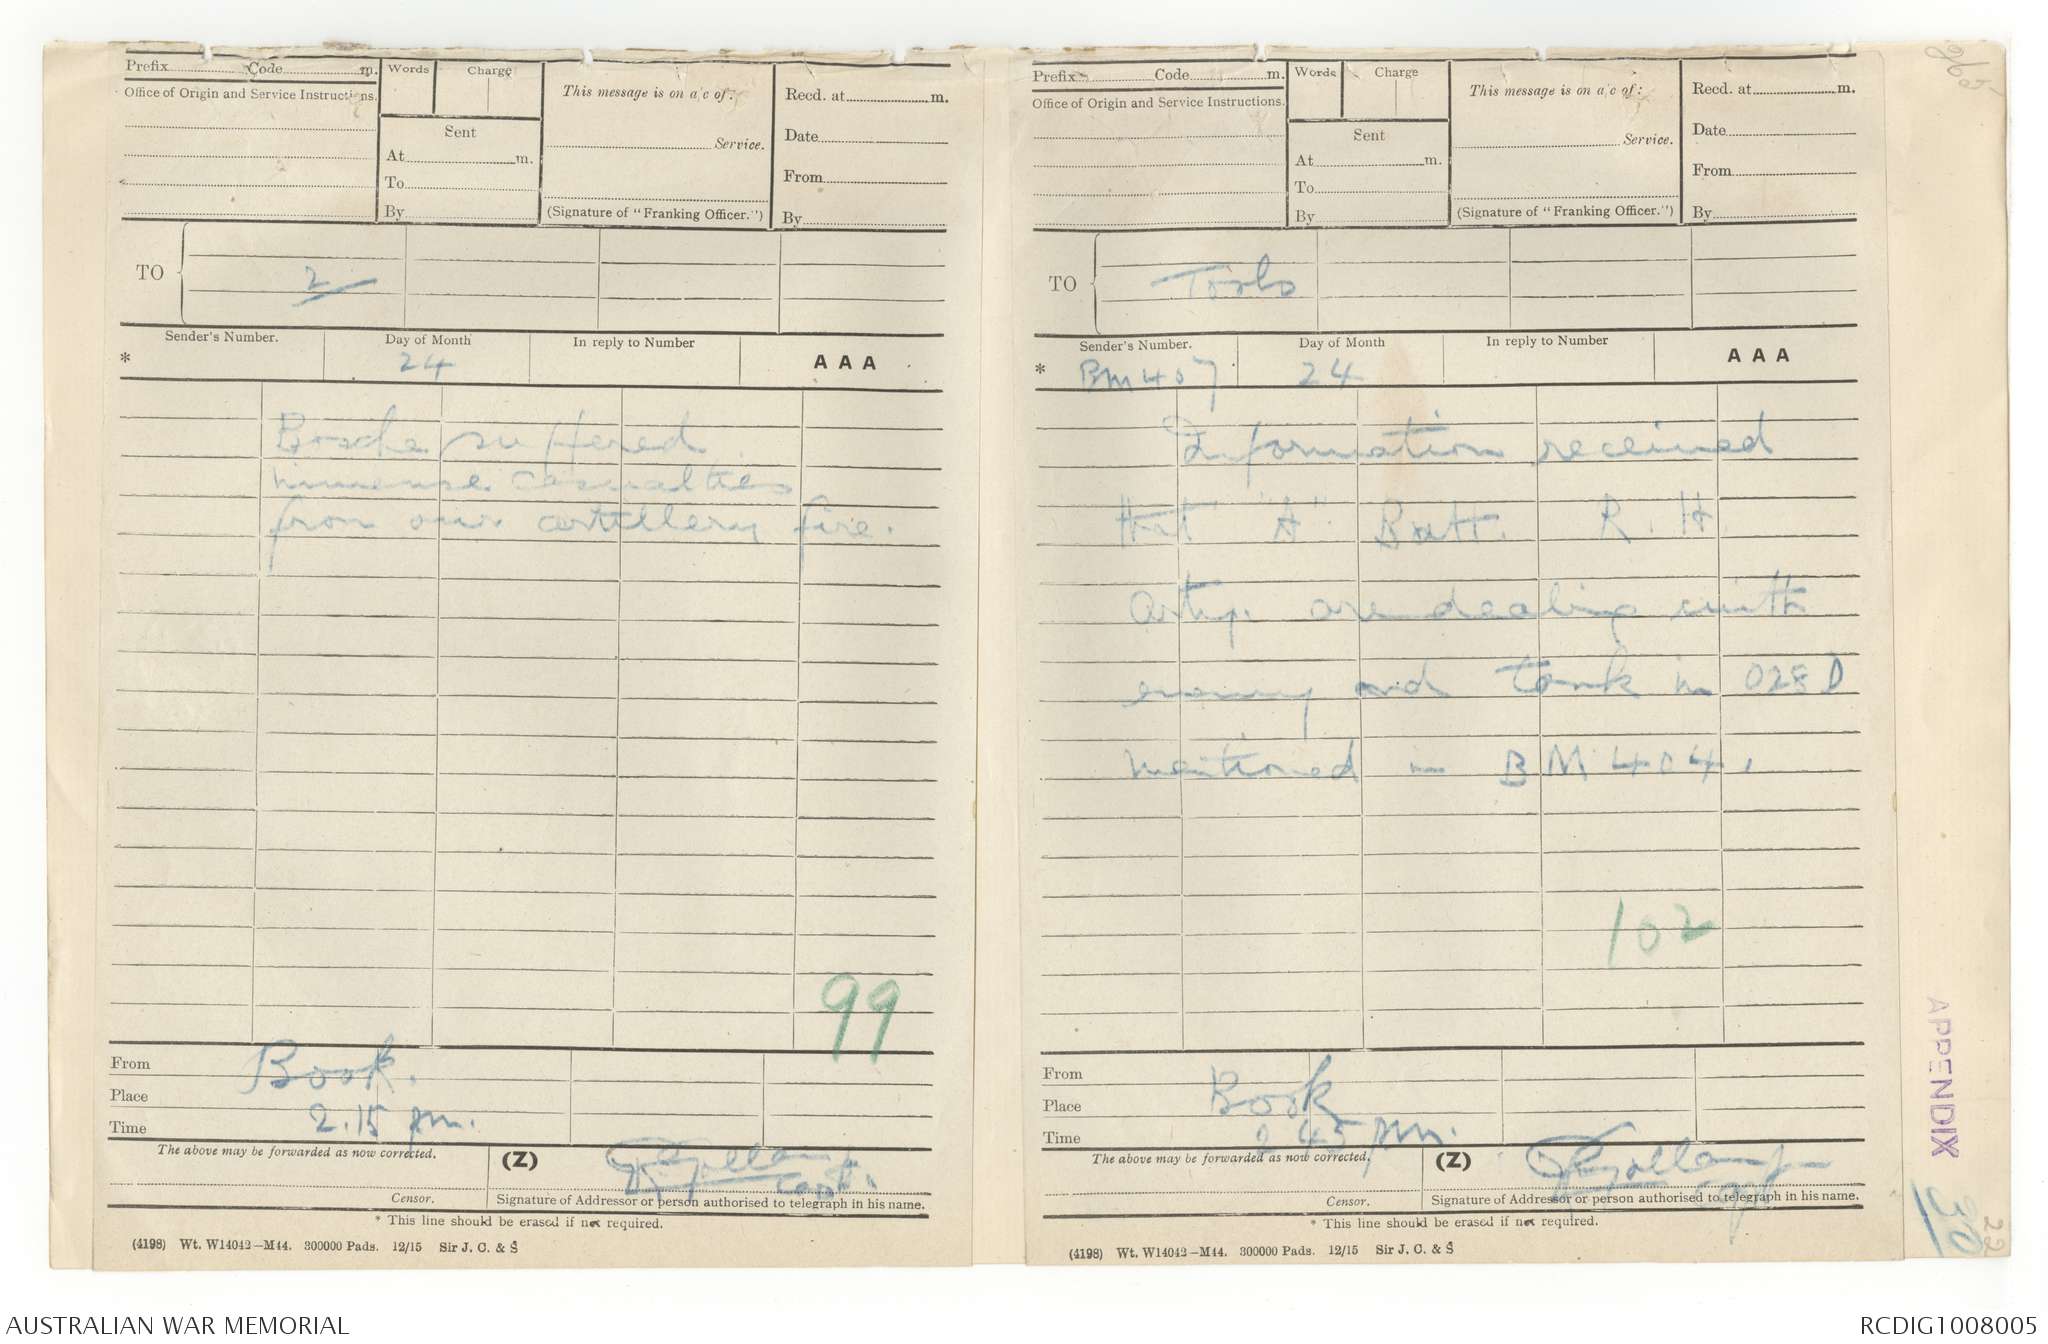 Prefix Code m.
Words Charge
This message is on a/c of:
Recd. at m.
Office of Origin and Service Instructions.
Sent
Service.
Date
At m.
From
To
By
(Signature of "Franking Officer.")
By
TO
2
Sender's Number.
Day of Month
In reply to Number
AAA
*
24
Bosche suffered
immense casualties
from our artillery fire.
99
From
Book.
Place
Time
2.15 pm.
The above may be forwarded as now corrected.
(Z)
Capt.
Censor.
Signature of Addressor or person authorised to telegraph in his name.
* This line should be erased if not required.
(4198) Wt. W14042—M44. 300000 Pads. 12/15 Sir J. C. & S
Prefix Code m.
Words Charge
This message is on a/c of:
Recd. at m.
Office of Origin and Service Instructions.
Sent
Service.
Date
At m.
From
To
By
(Signature of "Franking Officer.")
By
TO
Tools
Sender's Number.
Day of Month
In reply to Number
AAA
*
BM407
24
Information received
that "A" Batt. R.H.
Arty. are dealing with
enemy and tank in O28D
mentioned in BM404.
102
From
Book
Place
Time
2 45 pm.
The above may be forwarded as now corrected.
(Z)
Censor.
Signature of Addressor or person authorised to telegraph in his name.
* This line should be erased if not required.
(4198) Wt. W14042—M44. 300000 Pads. 12/15 Sir J. C. & S
APPENDIX
30
22
AUSTRALIAN WAR MEMORIAL
RCDIG1008005